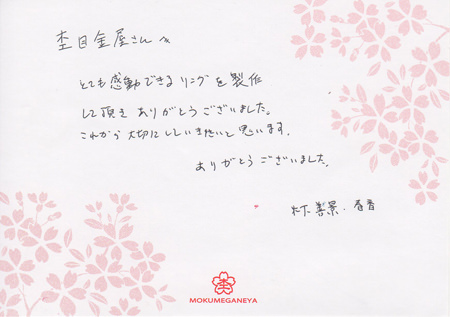 杢目金屋さんへ
とても感動できる リングを製作
して頂き ありがとうございました。
これから 大切にしていきたいと思います。
ありがとうございました。
MOKUMEGANEYA